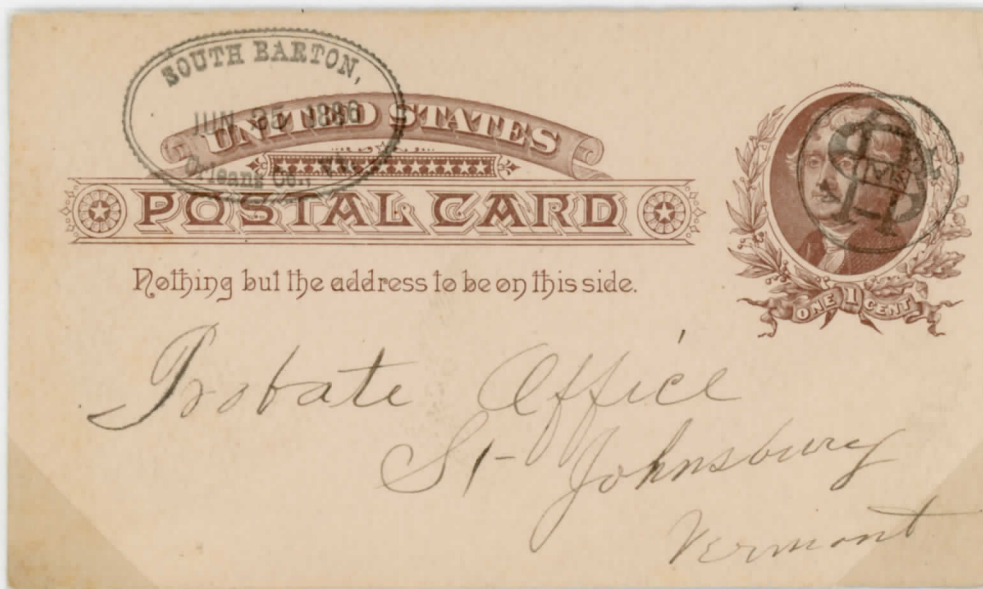 SOUTH BARTON,
JUN 25 1886
Orleans Co., Vt.
UNITED STATES
POSTAL CARD
Nothing but the address to be on this side.
ONE 1 CENT
Probate Office
St- Johnsbury
Vermont